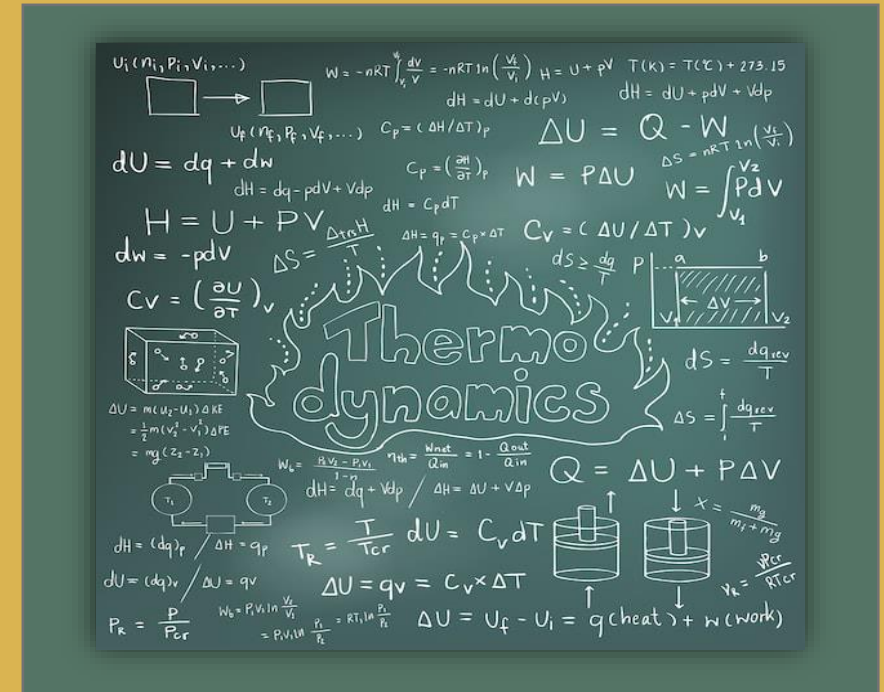 Ui(ni,Pi,Vi,...)
W = -nRT ∫ dv/V = -nRT ln(Vf/Vi)
H = U + pV
T(K) = T(℃) + 273.15
dH = dU + d(pV)
dH = dU + pdV + Vdp
Uf(nf,Pf,Vf,...)
Cp = (ΔH/ΔT)p
ΔU = Q - W
ΔS = nRT ln(Vf/Vi)
dU = dq + dw
Cp = (∂H/∂T)p
W = PΔU
W = ∫V1 V2 PdV
dH = dq - pdV + Vdp
dH = CpdT
H = U + PV
ΔS = ΔtrsH/T
ΔH = qp = Cp×ΔT
Cv = (ΔU/ΔT)v
dw = -pdV
dS ≥ dq/T
P a b
ΔV
V1 V2
Cv = (∂U/∂T)v
Thermo
dynamics
dS = dqrev/T
ΔS = ∫i f dqrev/T
ΔU = m(u2-u1)ΔKE
= 1/2m(v2²-v1²)ΔPE
= mg(z2-z1)
Wb = P2V2 - P1V1/1-n
ηth = Wnet/Qin = 1 - Qout/Qin
Q = ΔU + PΔV
dH = dq + Vdp / ΔH = ΔU + VΔp
T1 T2
X = mg/mf + mg
dH = (dq)p / ΔH = qp
TR = T/Tcr
dU = CvdT
dU = (dq)v / ΔU = qv
ΔU = qv = Cv×ΔT
VR = VPcr/RTcr
PR = P/Pcr
Wb = P1V1ln V2/V1
= P1V1ln P1/P2 = RT1ln P1/P2
ΔU = Uf - Ui = q(heat) + w(work)